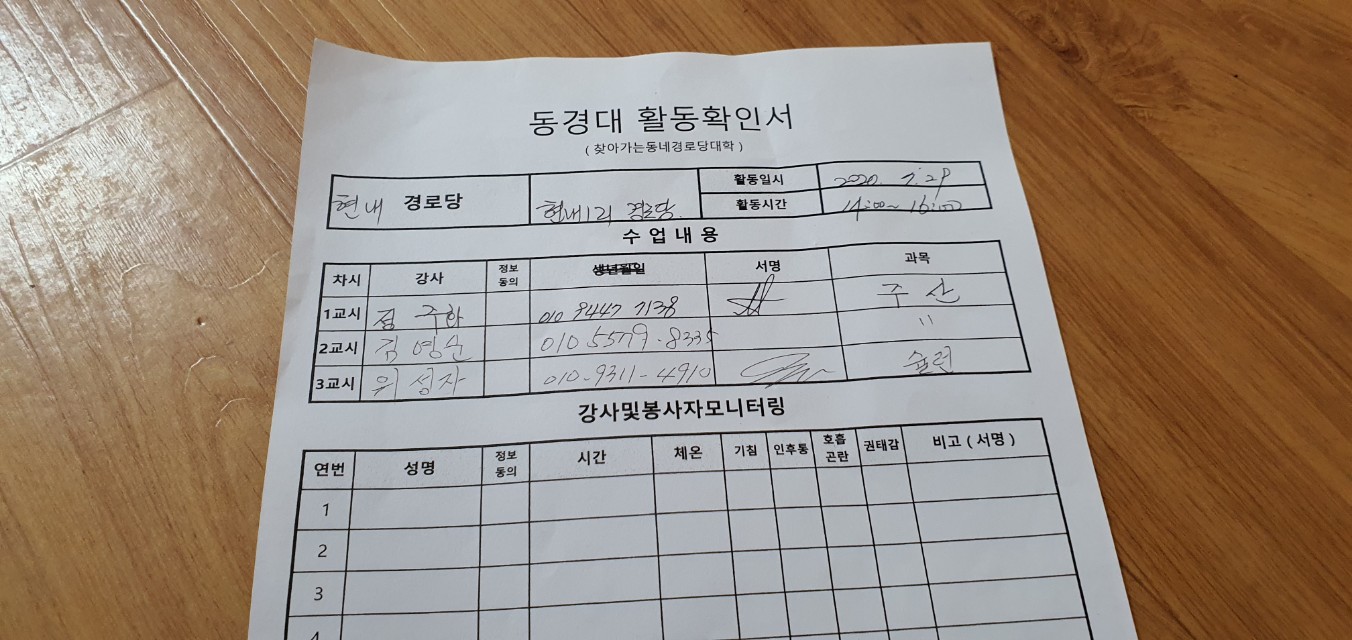 동경대 활동확인서
( 찾아가는동네경로당대학 )
현내 경로당 현내1리 경로당. 활동일시 2020. 7. 29
활동시간 14:00~ 16:00
수 업 내 용
차시 강사 정보동의 생년월일 서명 과목
1교시 주하 010 9447 7138 주 산
2교시 김 영순 010 5579-8335 "
3교시 위 성자 010-9311-4910
강사및봉사자모니터링
연번 성명 정보동의 시간 체온 기침 인후통 호흡곤란 권태감 비고 ( 서명 )
1
2
3
4